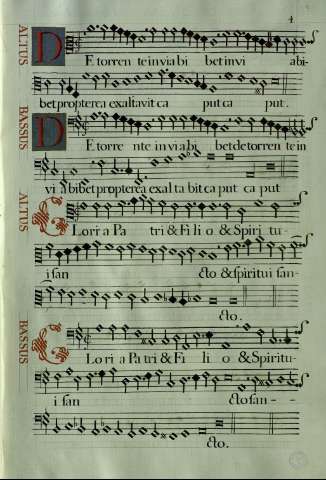 4
ALTUS
DE torren te in via bi bet in vi a bi-
bet propterea exaltavit ca put ca put.
BASSUS
DE torre nte in via bi bet de torren te in
vi a bibet propterea exal ta bit ca pnt ca put
ALTUS
Glori a Pa tri & Fi li o & Spiri tu-
i san cto & spiritui san-
cto.
BASSUS
Glori a Patri & Fi li o & Spiritu-
i san cto san-
cto.